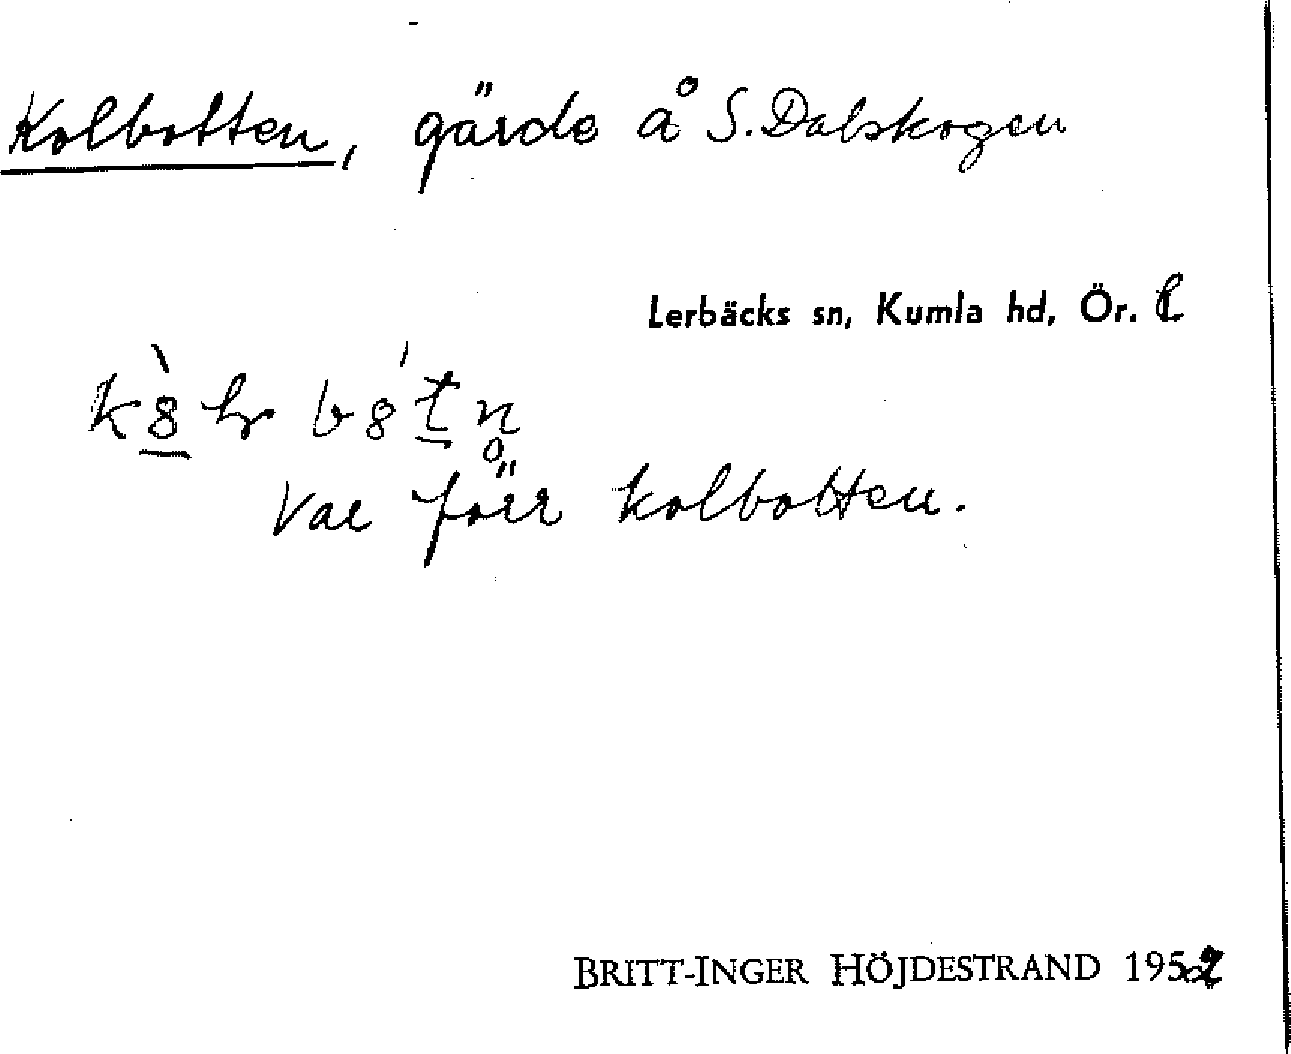 Kolbotten, gärde å S. Dalskogen
Lerbäcks sn, Kumla hd, Ör. l
Var förr kolbotten.
BRITT-INGER HÖJDESTRAND 1952